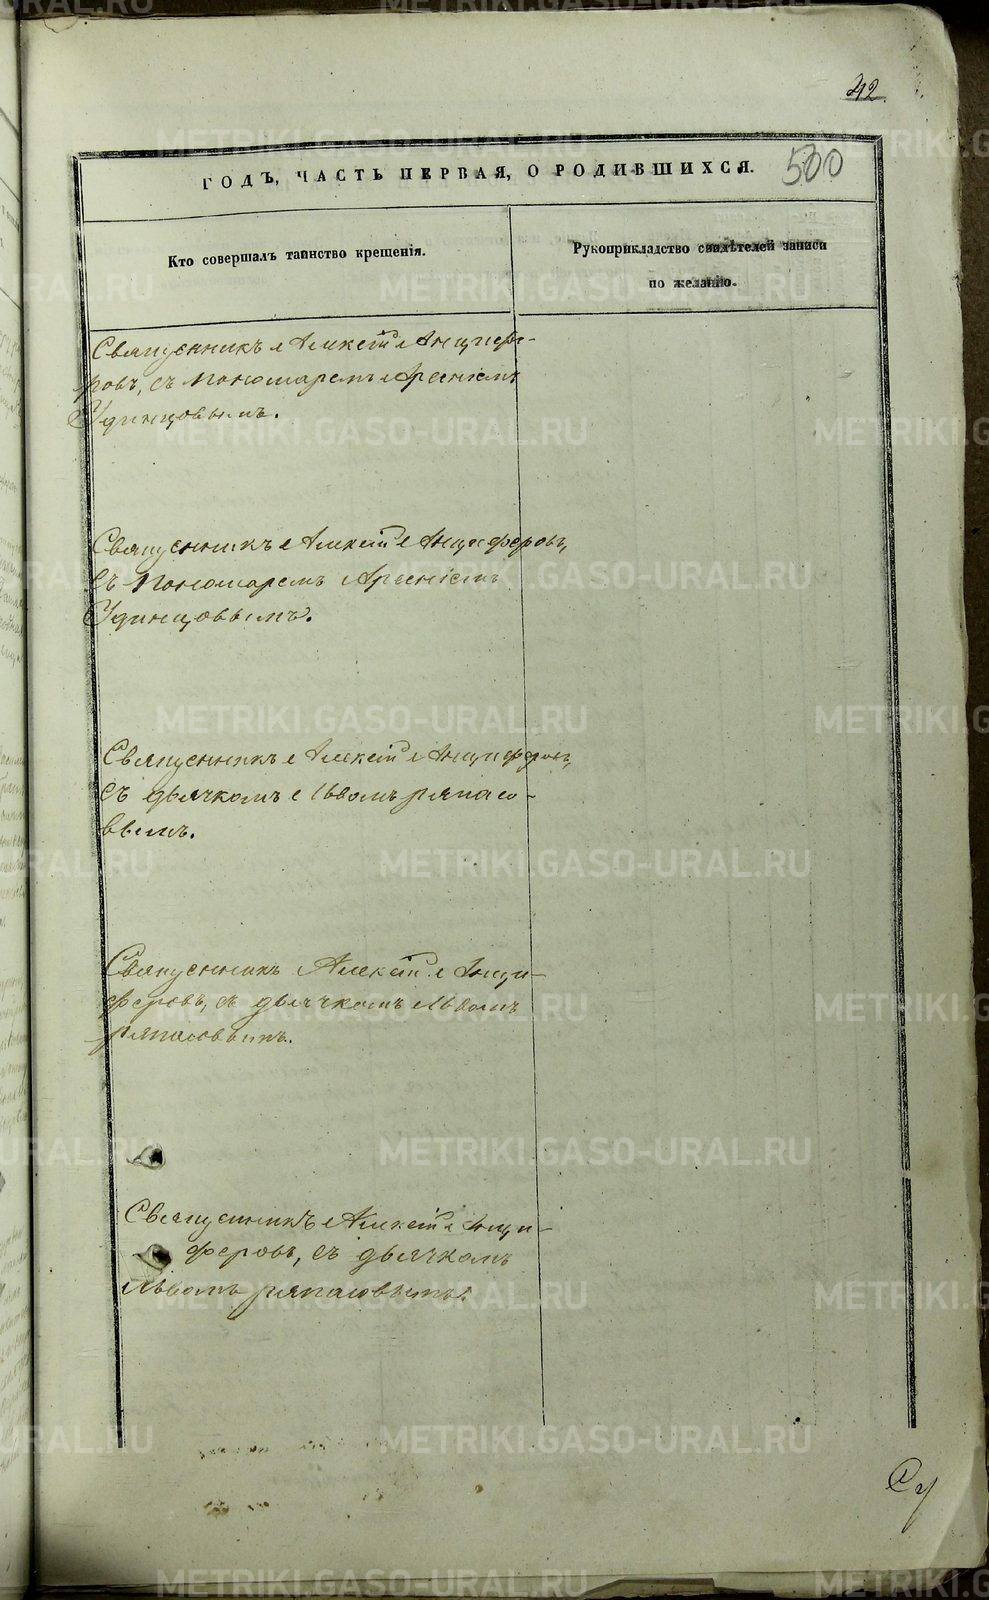 42.
500
ГОДЪ, ЧАСТЬ ПЕРВАЯ, О РОДИВШИХСЯ.
Кто совершалъ таинство крещенія.
Рукоприкладство свидѣтелей записи
по желанію.
Священникъ Алексій Анцифе-
ровъ, съ пономаремъ Арсеніемъ
Удинцовымъ.
Священникъ Алексій Анциферовъ,
съ пономаремъ Арсеніемъ
Удинцовымъ.
Священникъ Алексій Анциферовъ,
съ дьячкомъ Львомъ Ряпасо-
вымъ.
Священникъ Алексій Анци-
феровъ, съ дьячкомъ Львомъ
Ряпасовымъ.
Священникъ Алексій Анци-
феровъ, съ дьячкомъ
Львомъ Ряпасовымъ.
METRIKI.GASO-URAL.RU